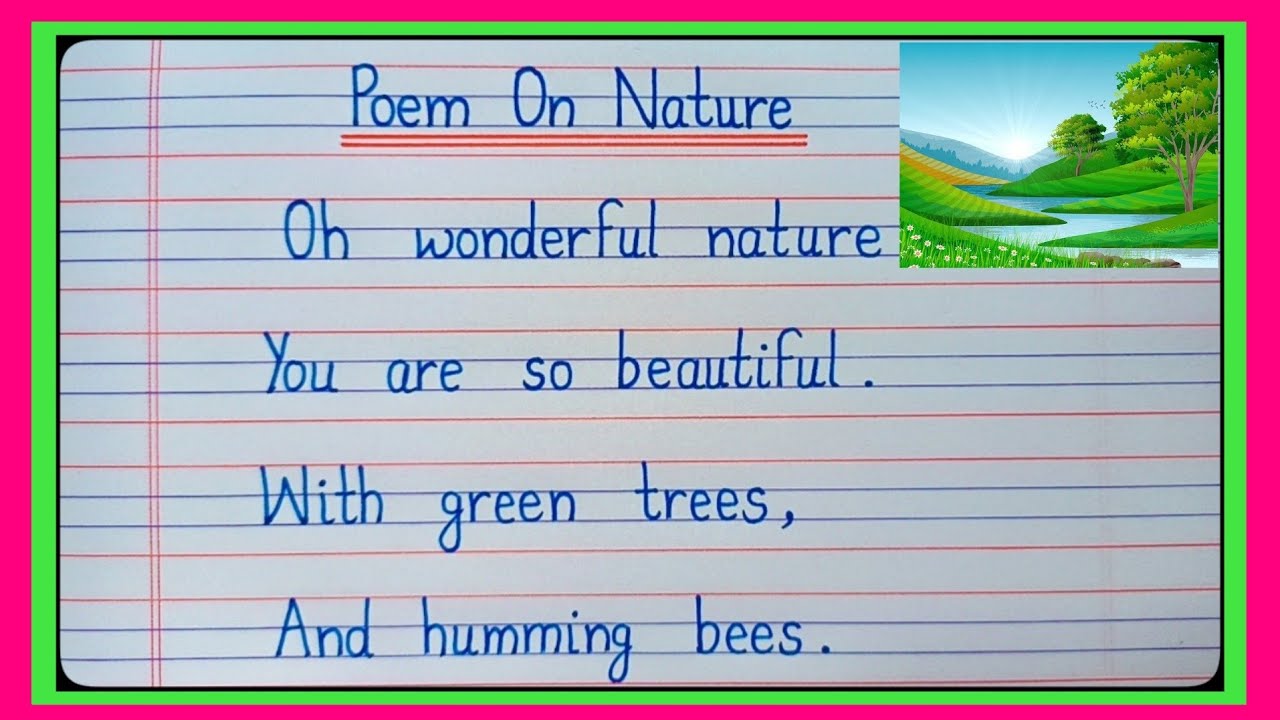 Poem On Nature
Oh wonderful nature
You are so beautiful.
With green trees,
And humming bees.